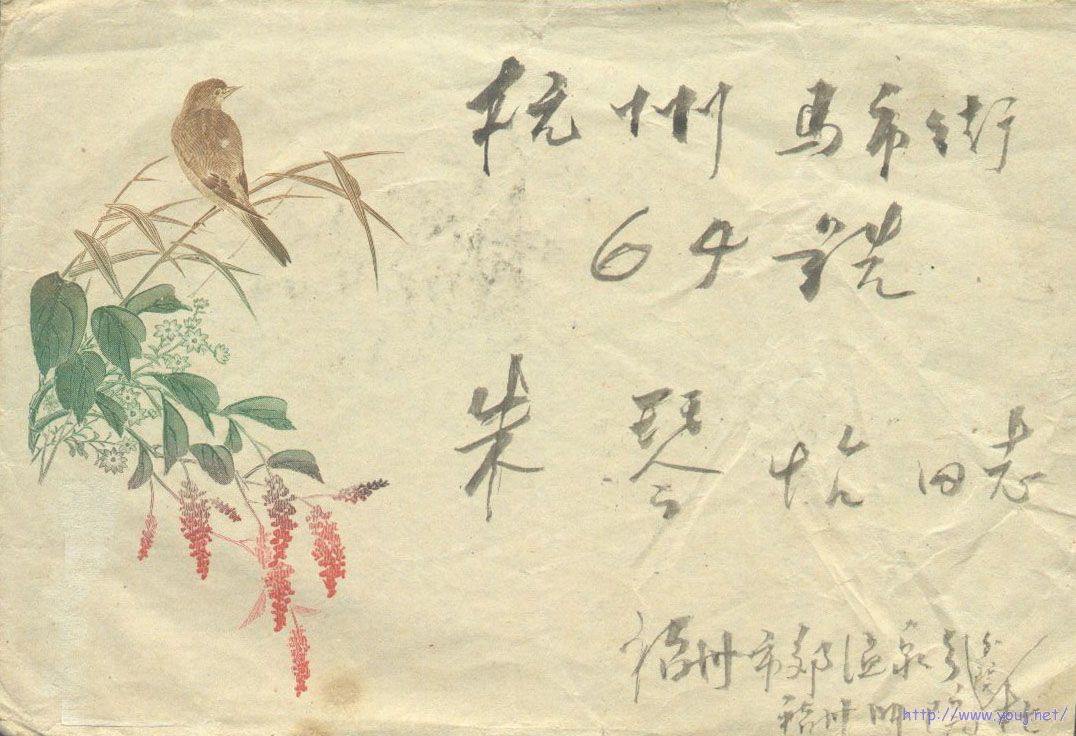 杭州马市街
64号
朱琴怡同志
福州市郊温泉
福州
http://www.youj.net/